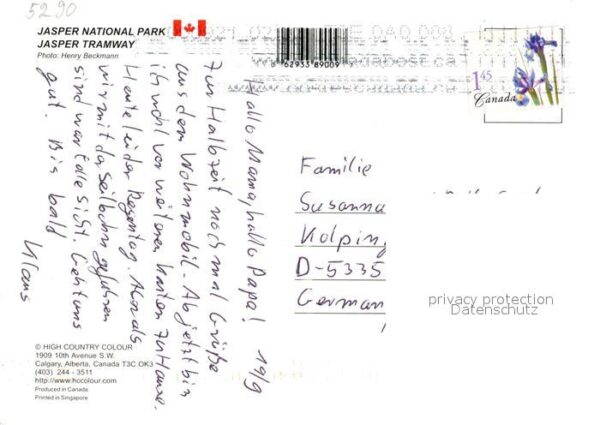 5290
JASPER NATIONAL PARK
JASPER TRAMWAY
Photo: Henry Beckmann
8 62933 89009
1.45
Canada
Hallo Mama, hallo Papa! 19/9
Zur Halbzeit nochmal Grüße
aus dem Wohnmobil. Ab jetzt bin
ich wohl vor weiteren Karten zu Hause.
Heute leider Regentag. Als
wir mit der Seilbahn gefahren
sind war tolle Sicht. Geht uns
gut. Bis bald
Klaus
Familie
Susanna
Kolpin
D-5335
German
privacy protection
Datenschutz
© HIGH COUNTRY COLOUR
1909 10th Avenue S.W.
Calgary, Alberta, Canada T3C OK3
(403) 244 - 3511
http://www.hccolour.com
Produced in Canada
Printed in Singapore